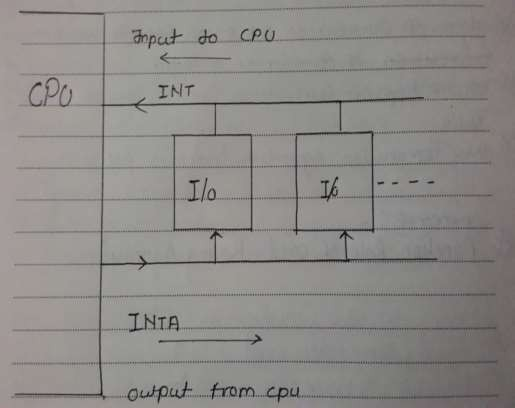 Input to CPU
CPU
INT
I/O
I/O
INTA
output from cpu